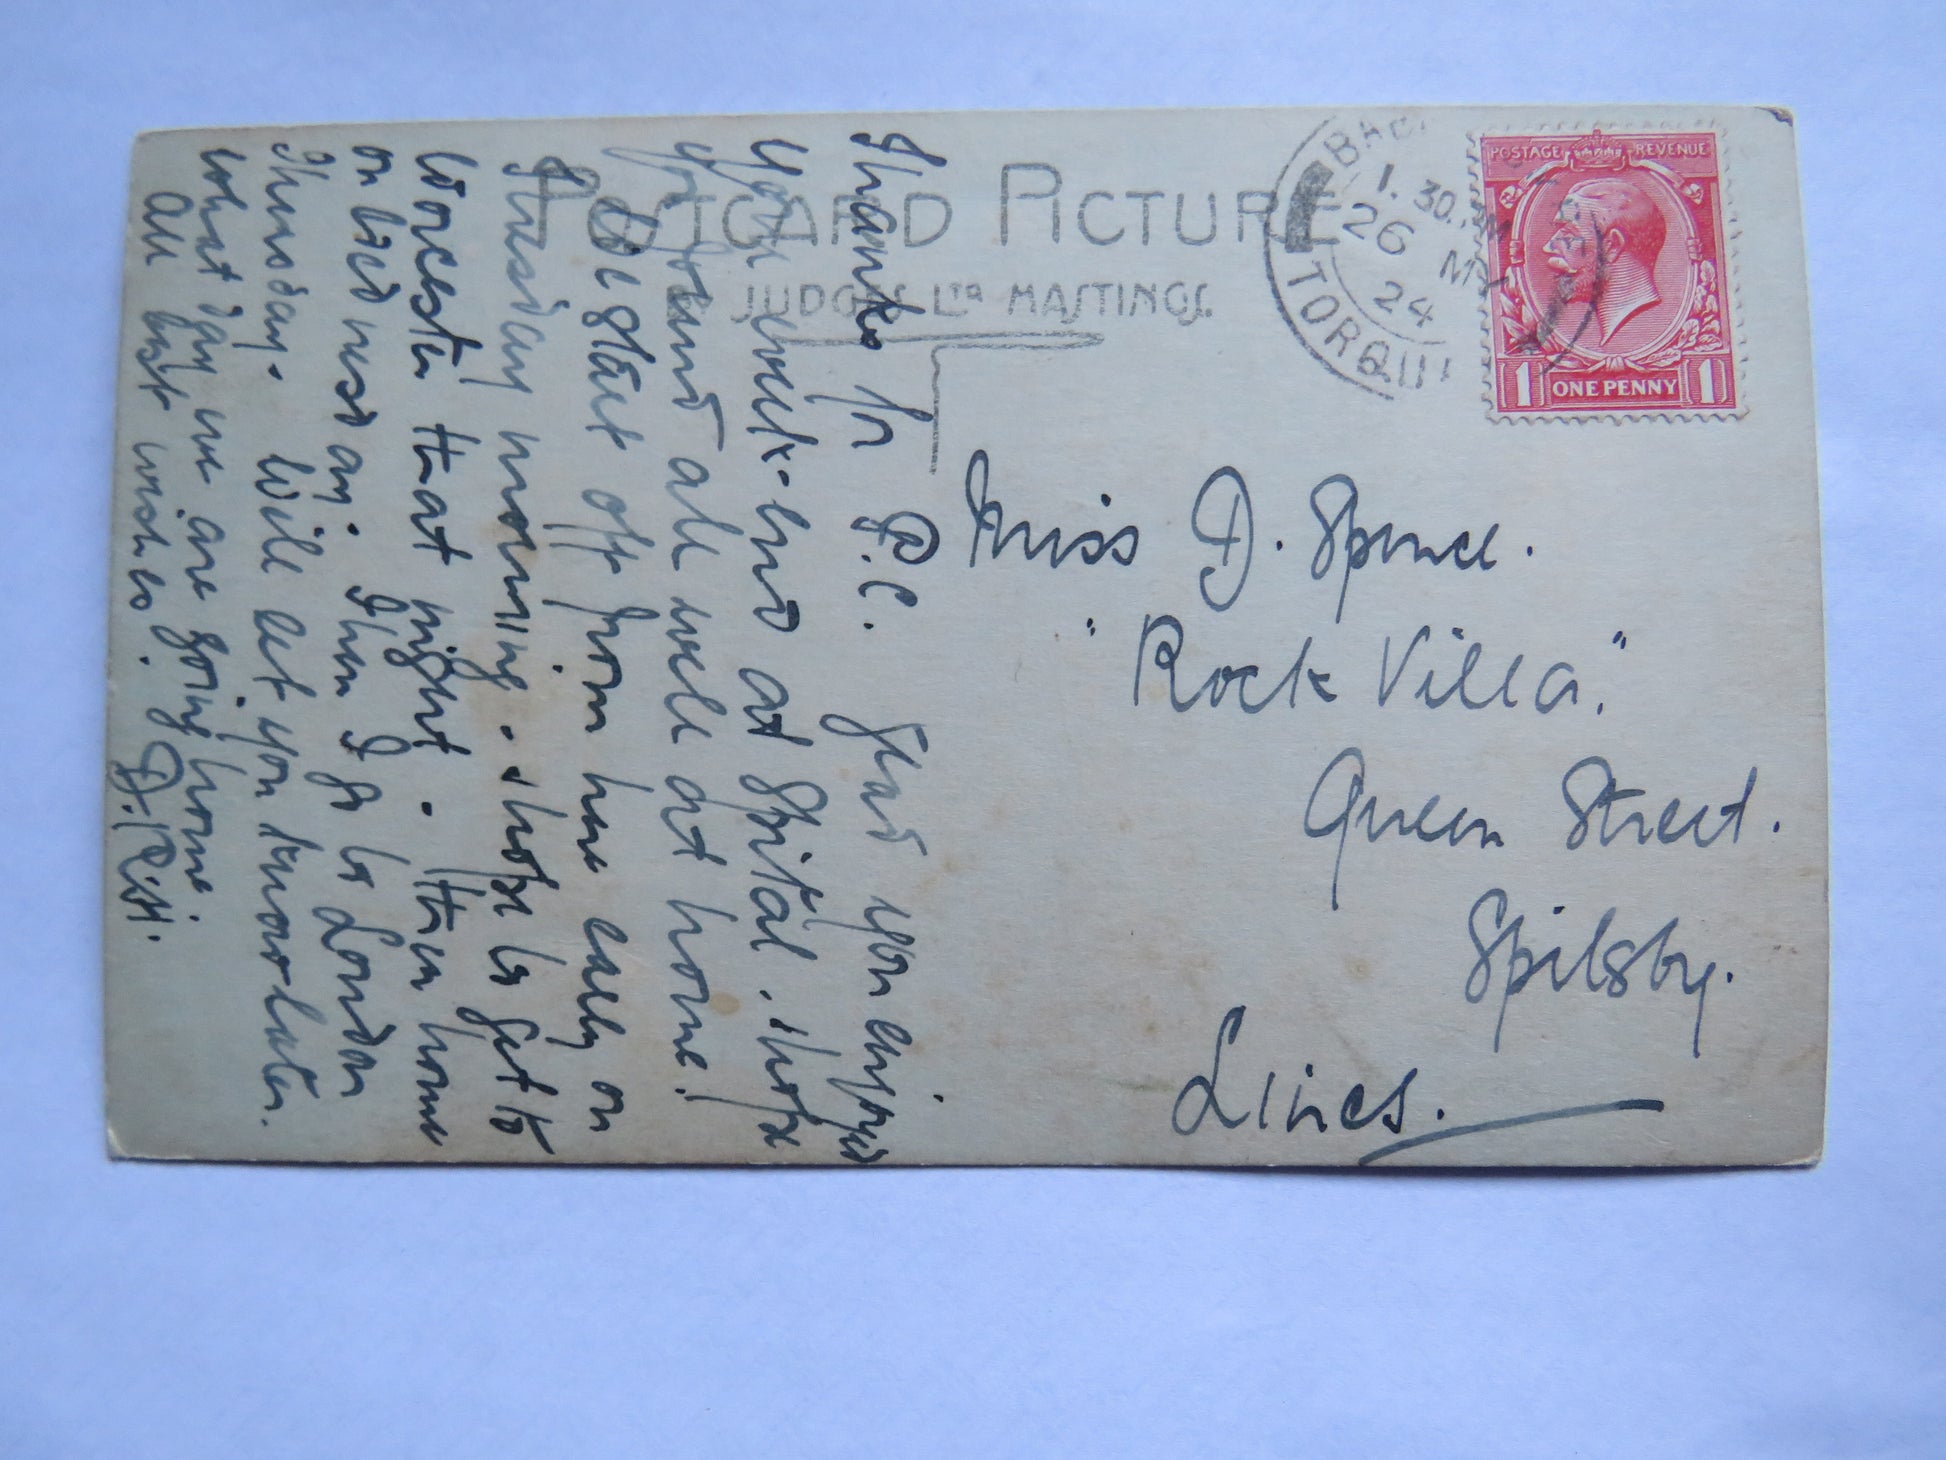 POSTCARD PICTURE
JUDGES LTD HASTINGS.
BAB
1. 30. PM
26 MY
24
TORQU
POSTAGE REVENUE
1 ONE PENNY 1
Thanks for P.C. Glad you enjoyed
your week-end at Spital. I hope
you found all well at home!
We start off from here early on
Tuesday morning. I hope to get to
Worcester that night. Then home
on Wednesday. Then I go to London
Thursday. Will let you know later.
what day we are going home.
All best wishes.
Miss D. Spence.
"Rock Villa."
Queen Street.
Spilsby.
Lincs.